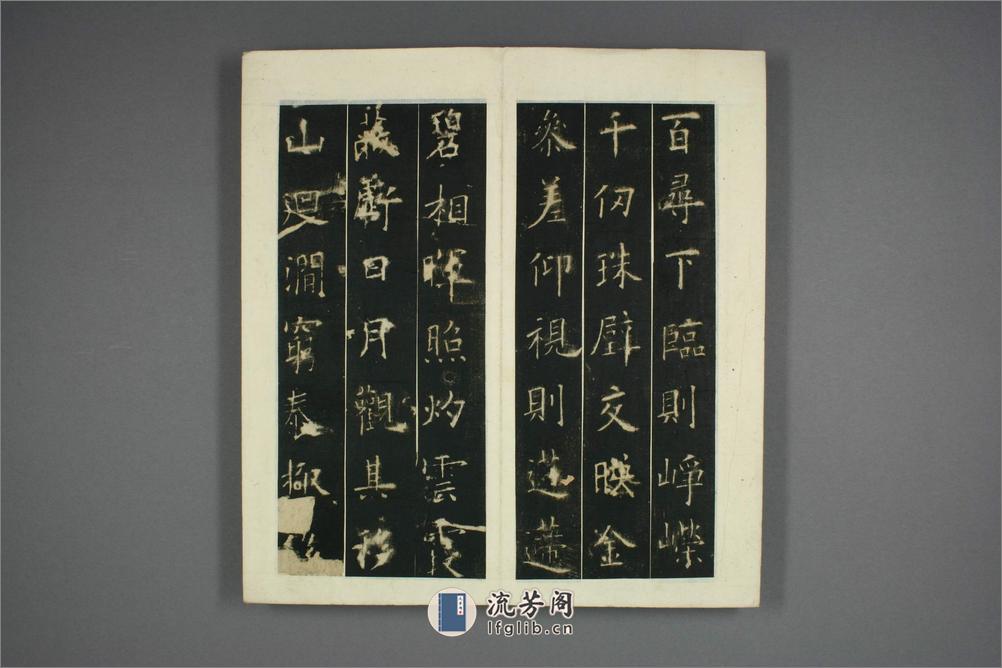 百尋下臨則崢嶸
千仞珠壁交暎金
叅差仰視則迢遰
碧相暉照灼雲霞
蔽虧日月觀其移
山迴澗窮泰極
流芳阁
lfglib.cn